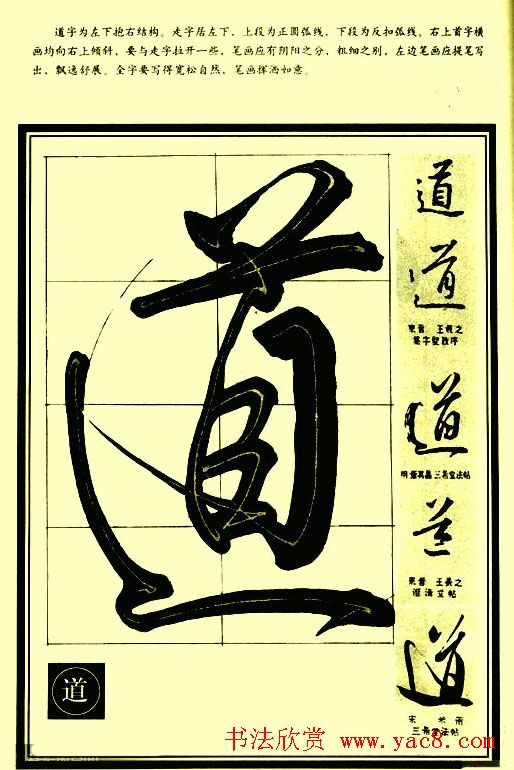 道字为左下抱右结构。走字居左下，上段为正圆弧线，下段为反扣弧线。右上首字横
画均向右上倾斜，要与走字拉开一些，笔画应有阴阳之分，粗细之别，左边笔画应提笔写
出，飘逸舒展。全字要写得宽松自然，笔画挥洒如意。
道
道
道
東晉 王羲之
集字聖教序
道
明 董其昌 三希堂法帖
道
東晉 王羲之
澄清堂帖
道
宋 米芾
三希堂法帖
道
书法欣赏 www.yac8.com